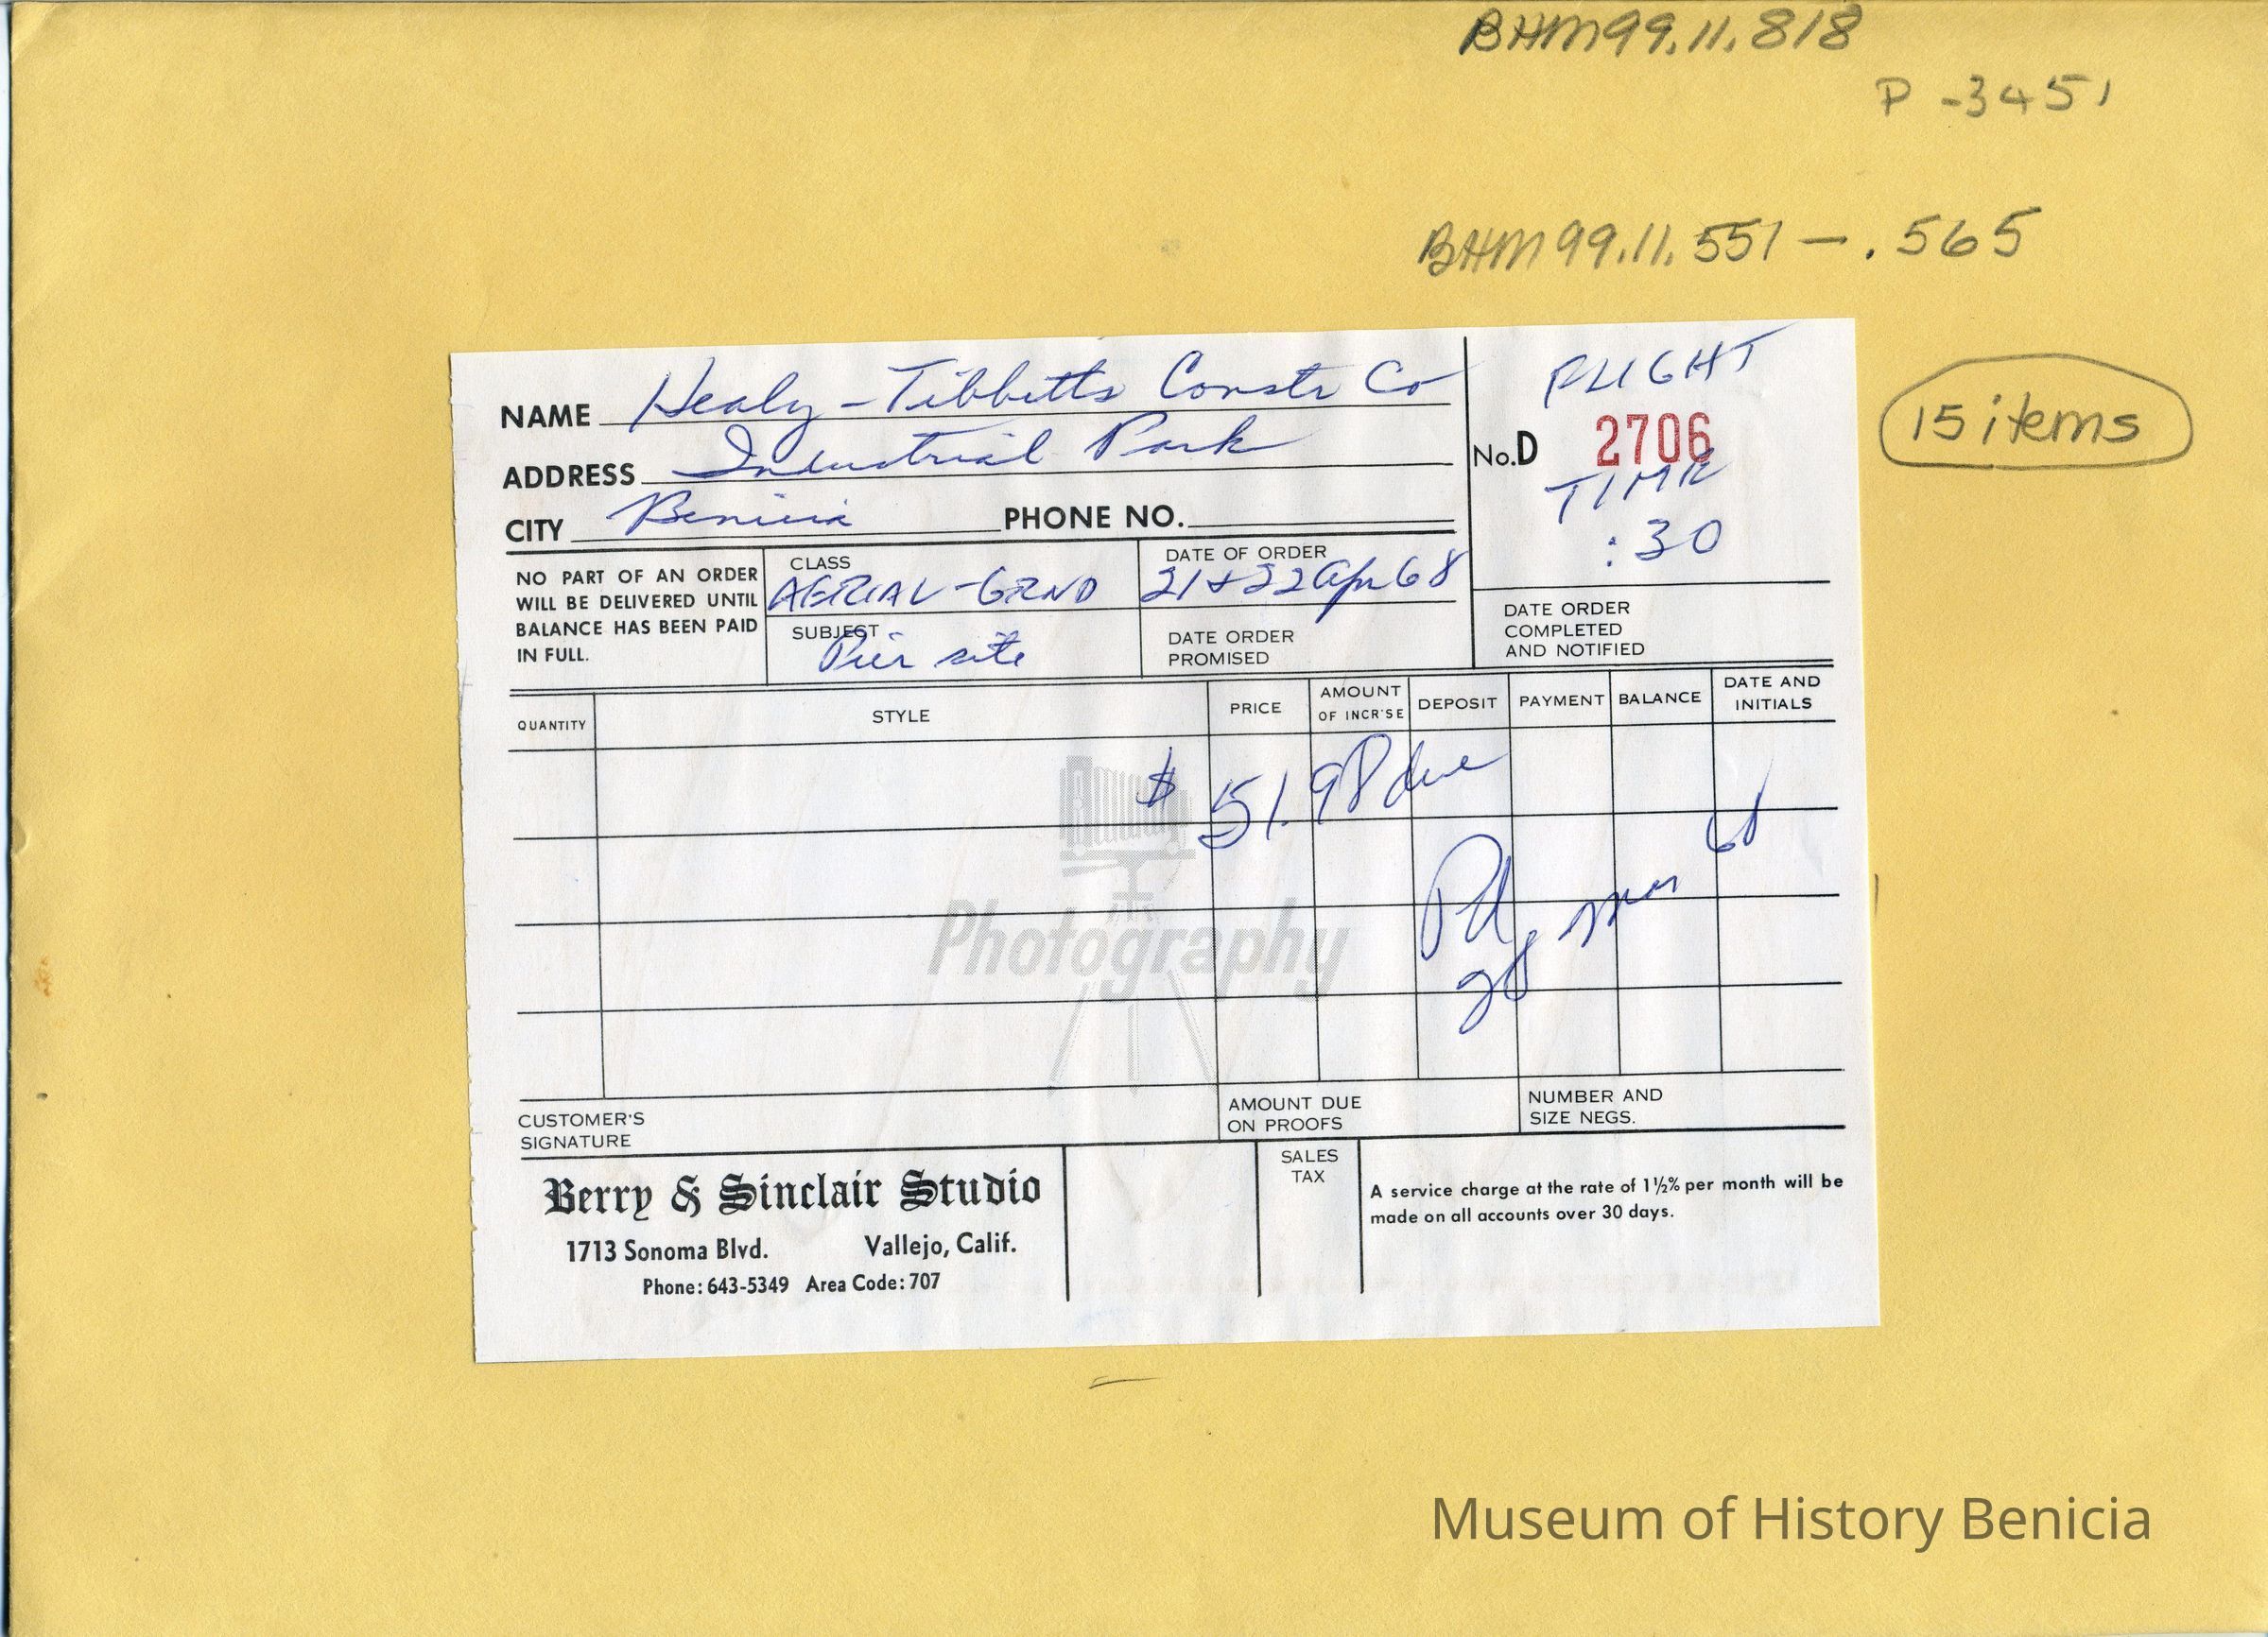 BHM99.11.818
P-3451
BHM99.11.551 — .565
15 items
NAME Healy-Tibbitts Constr Co
ADDRESS Industrial Park
CITY Benicia PHONE NO.
FLIGHT
No. D 2706
TIME
:30
NO PART OF AN ORDER
WILL BE DELIVERED UNTIL
BALANCE HAS BEEN PAID
IN FULL.
CLASS
AERIAL-GRND
SUBJECT
Pier site
DATE OF ORDER
21+22 Apr 68
DATE ORDER
PROMISED
DATE ORDER
COMPLETED
AND NOTIFIED
QUANTITY STYLE PRICE AMOUNT OF INCR'SE DEPOSIT PAYMENT BALANCE DATE AND INITIALS
$ 51.98 due
Pd
Photography
CUSTOMER'S
SIGNATURE
AMOUNT DUE
ON PROOFS
NUMBER AND
SIZE NEGS.
Berry & Sinclair Studio
1713 Sonoma Blvd. Vallejo, Calif.
Phone: 643-5349 Area Code: 707
SALES
TAX
A service charge at the rate of 1½% per month will be
made on all accounts over 30 days.
Museum of History Benicia